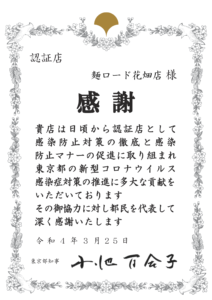 認証店
麺ロード花畑店 様
感謝
貴店は日頃から認証店として
感染防止対策の徹底と感染
防止マナーの促進に取り組まれ
東京都の新型コロナウイルス
感染症対策の推進に多大な貢献を
いただいております
その御協力に対し都民を代表して
深く感謝いたします
令和4年3月25日
東京都知事 小池百合子